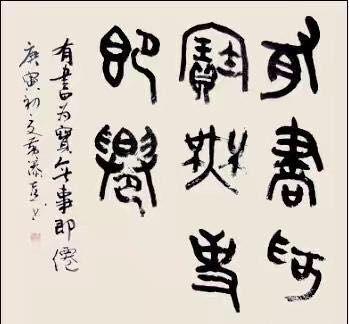 有書為
寶無事
即僊
有書為寶無事即僊
庚寅初文